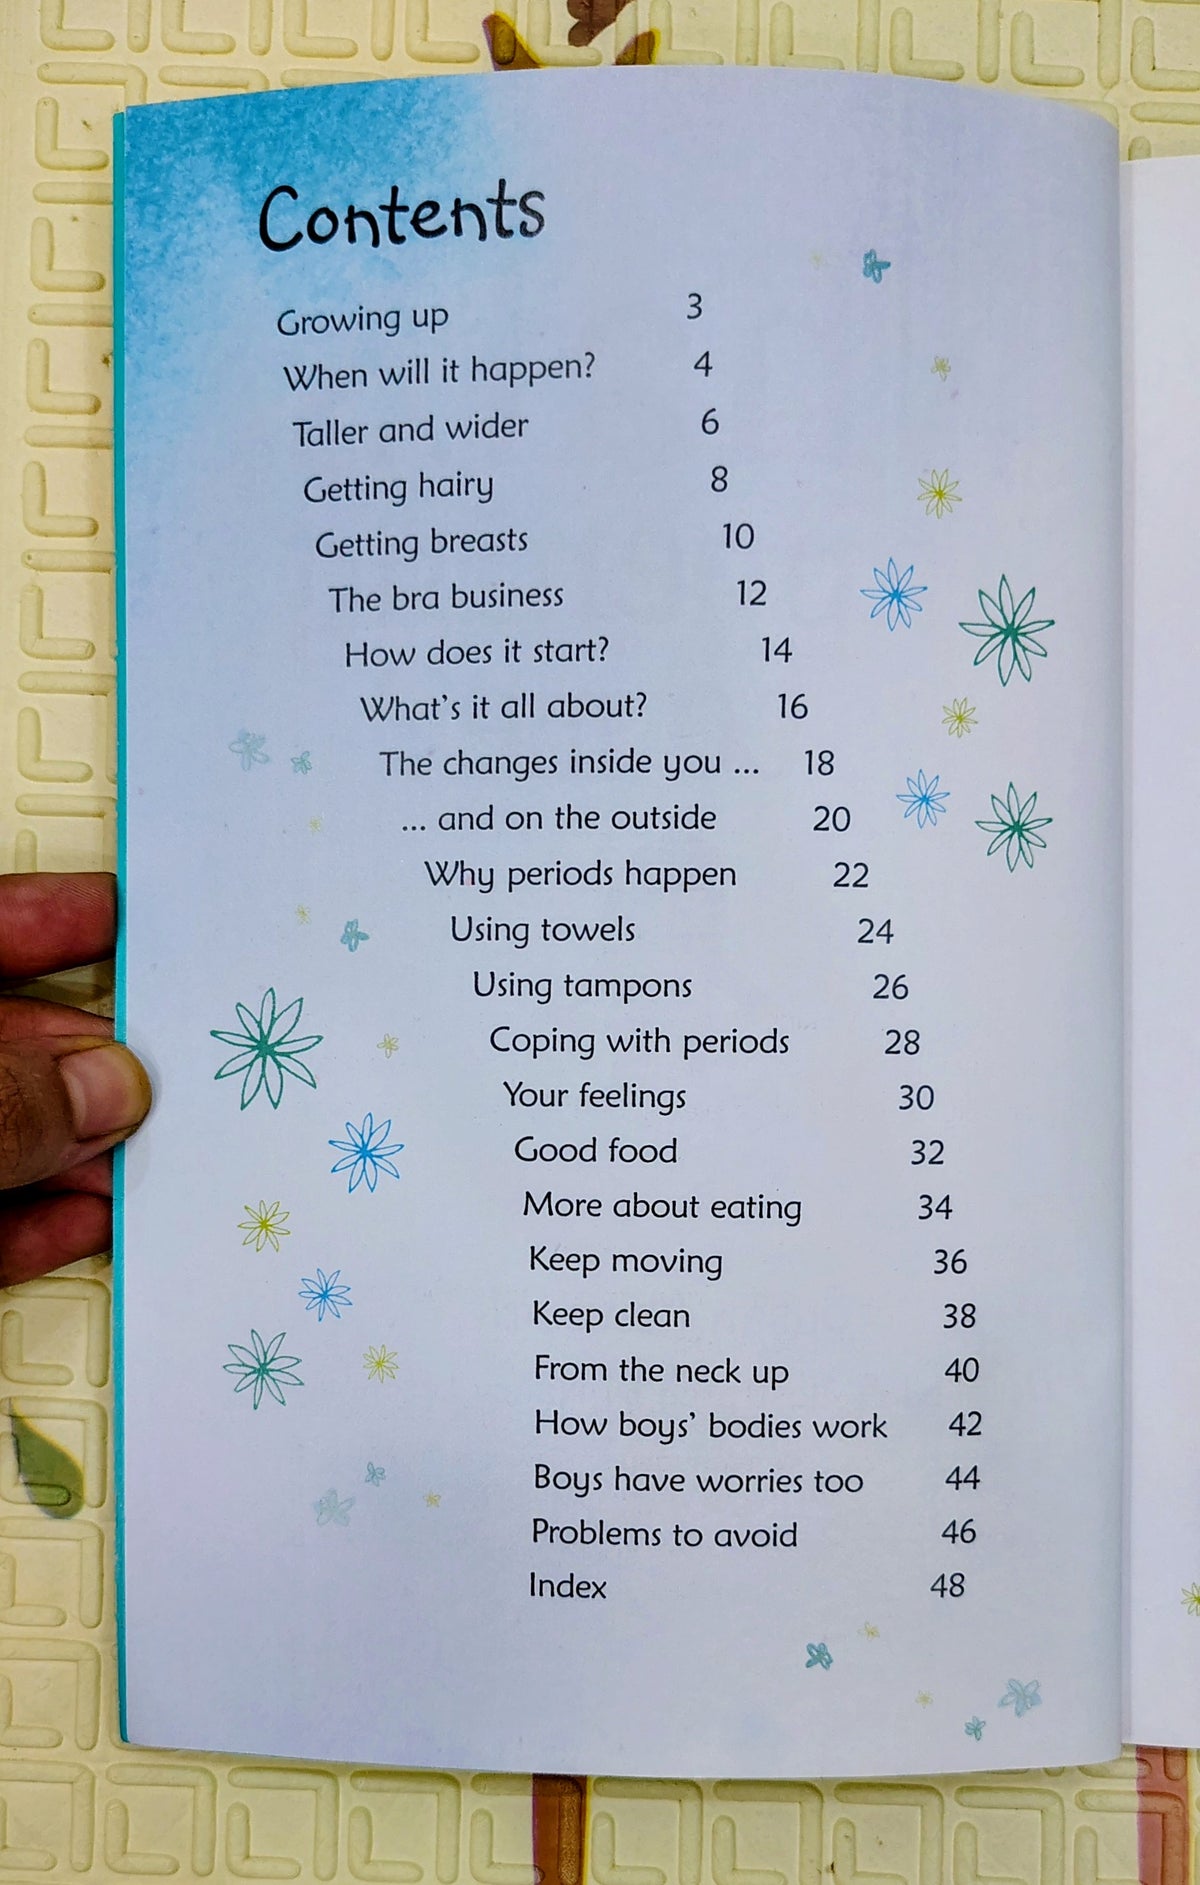 Contents
Growing up 3
When will it happen? 4
Taller and wider 6
Getting hairy 8
Getting breasts 10
The bra business 12
How does it start? 14
What's it all about? 16
The changes inside you ... 18
... and on the outside 20
Why periods happen 22
Using towels 24
Using tampons 26
Coping with periods 28
Your feelings 30
Good food 32
More about eating 34
Keep moving 36
Keep clean 38
From the neck up 40
How boys' bodies work 42
Boys have worries too 44
Problems to avoid 46
Index 48